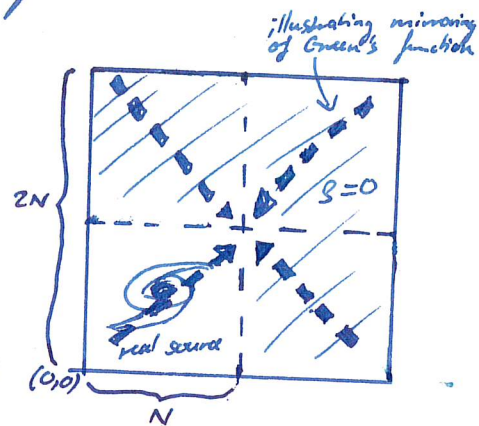 illustrating mirroring
of Green's function
2N
ρ=0
real source
(0,0)
N